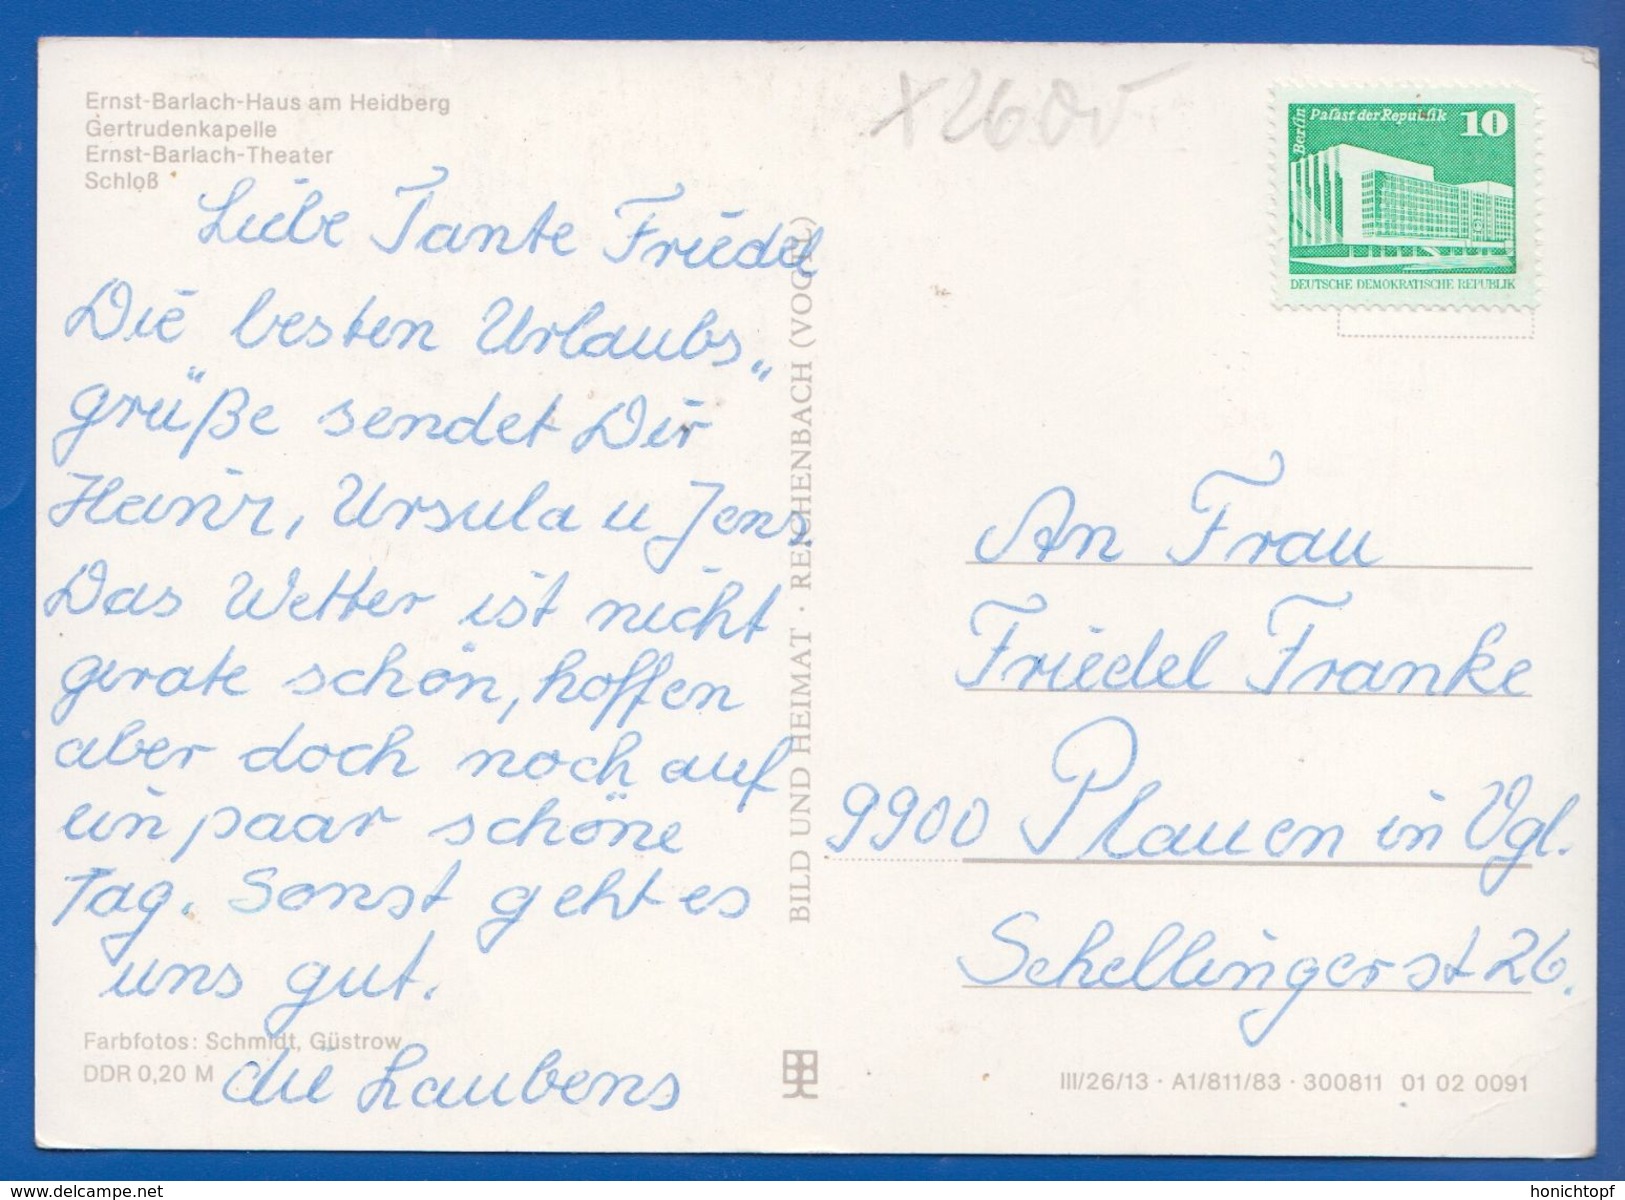 Ernst-Barlach-Haus am Heidberg
Gertrudenkapelle
Ernst-Barlach-Theater
Schloß
Liebe Tante Friedel
Die besten Urlaubs„
grüße sendet Dir
Heinz, Ursula u Jens,
Das Wetter ist nicht
gerate schön, hoffen
aber doch noch auf
ein paar schöne
Tag. Sonst geht es
uns gut.
die Laubens
Farbfotos: Schmidt, Güstrow
DDR 0,20 M
BILD UND HEIMAT · REICHENBACH (VOGTL)
Berlin
Palast der Republik
10
DEUTSCHE DEMOKRATISCHE REPUBLIK
An Frau
Friedel Franke
9900 Plauen in Vgl.
Schellingerst 26.
III/26/13 · A1/811/83 · 300811 01 02 0091
www.delcampe.net
honichtopf